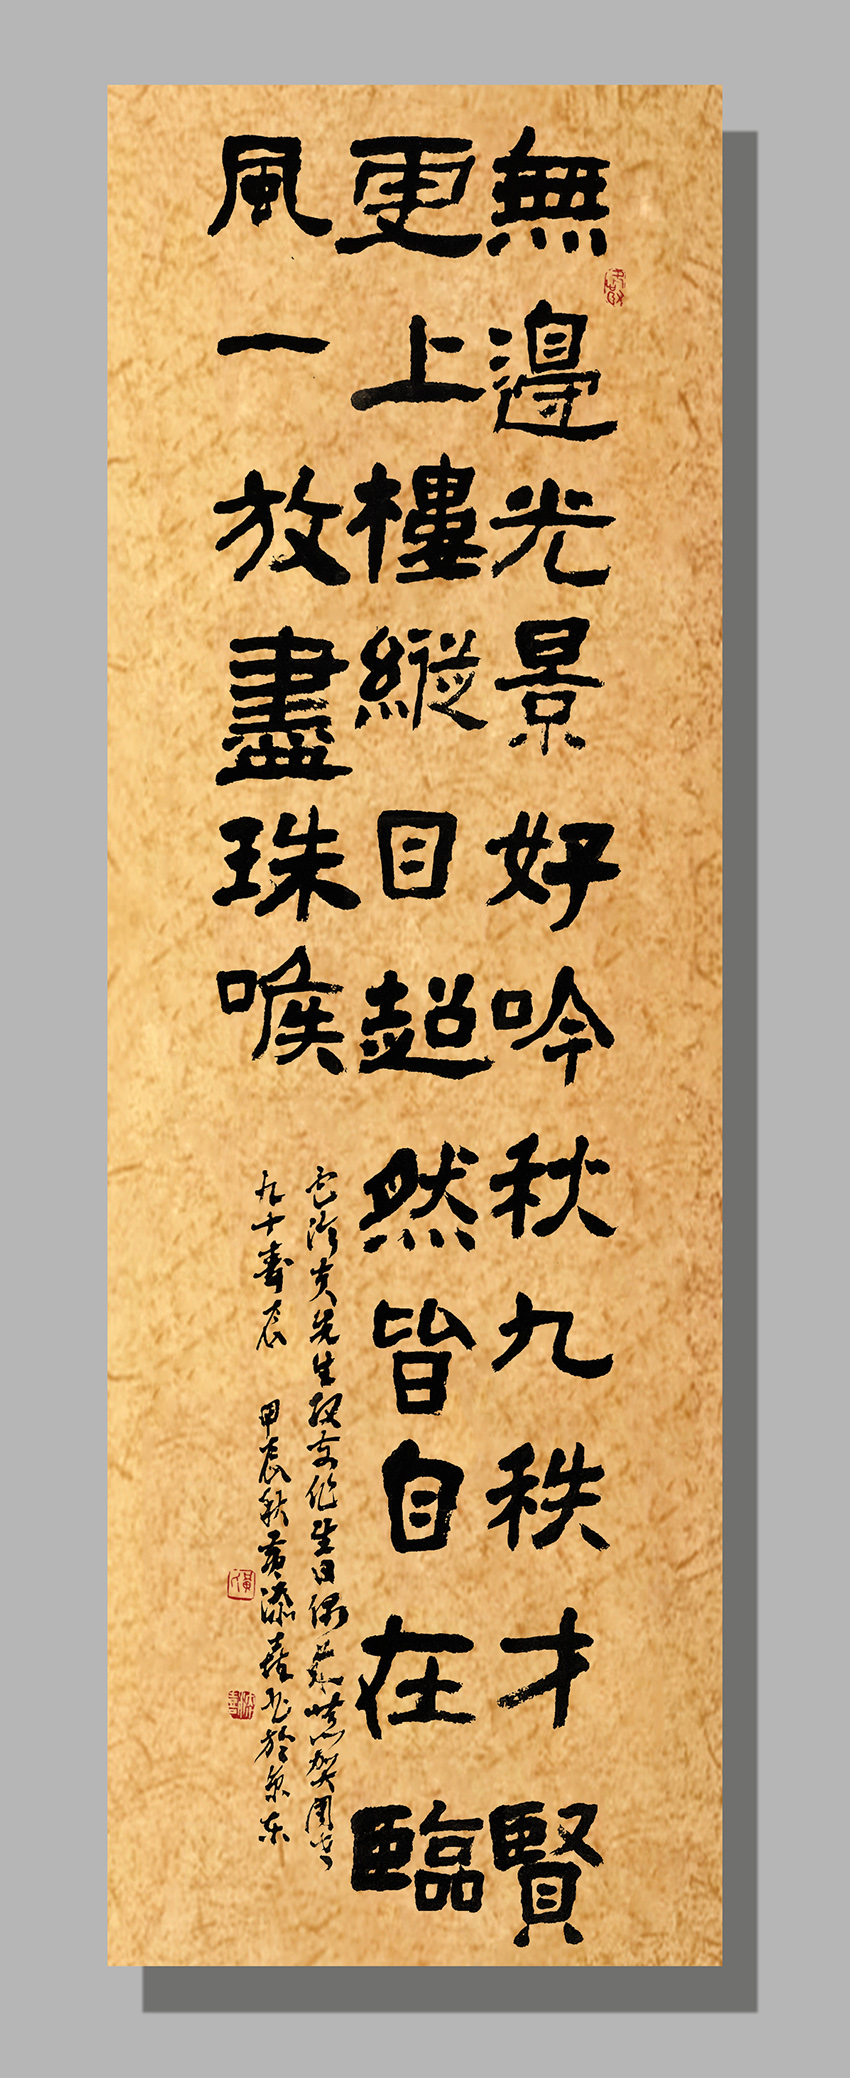 無邊光景好吟秋九秩才賢
更上樓縱目超然皆自在臨
風一放盡珠喉
先生
生日
賀
九十壽辰 甲辰秋黃添喜書於